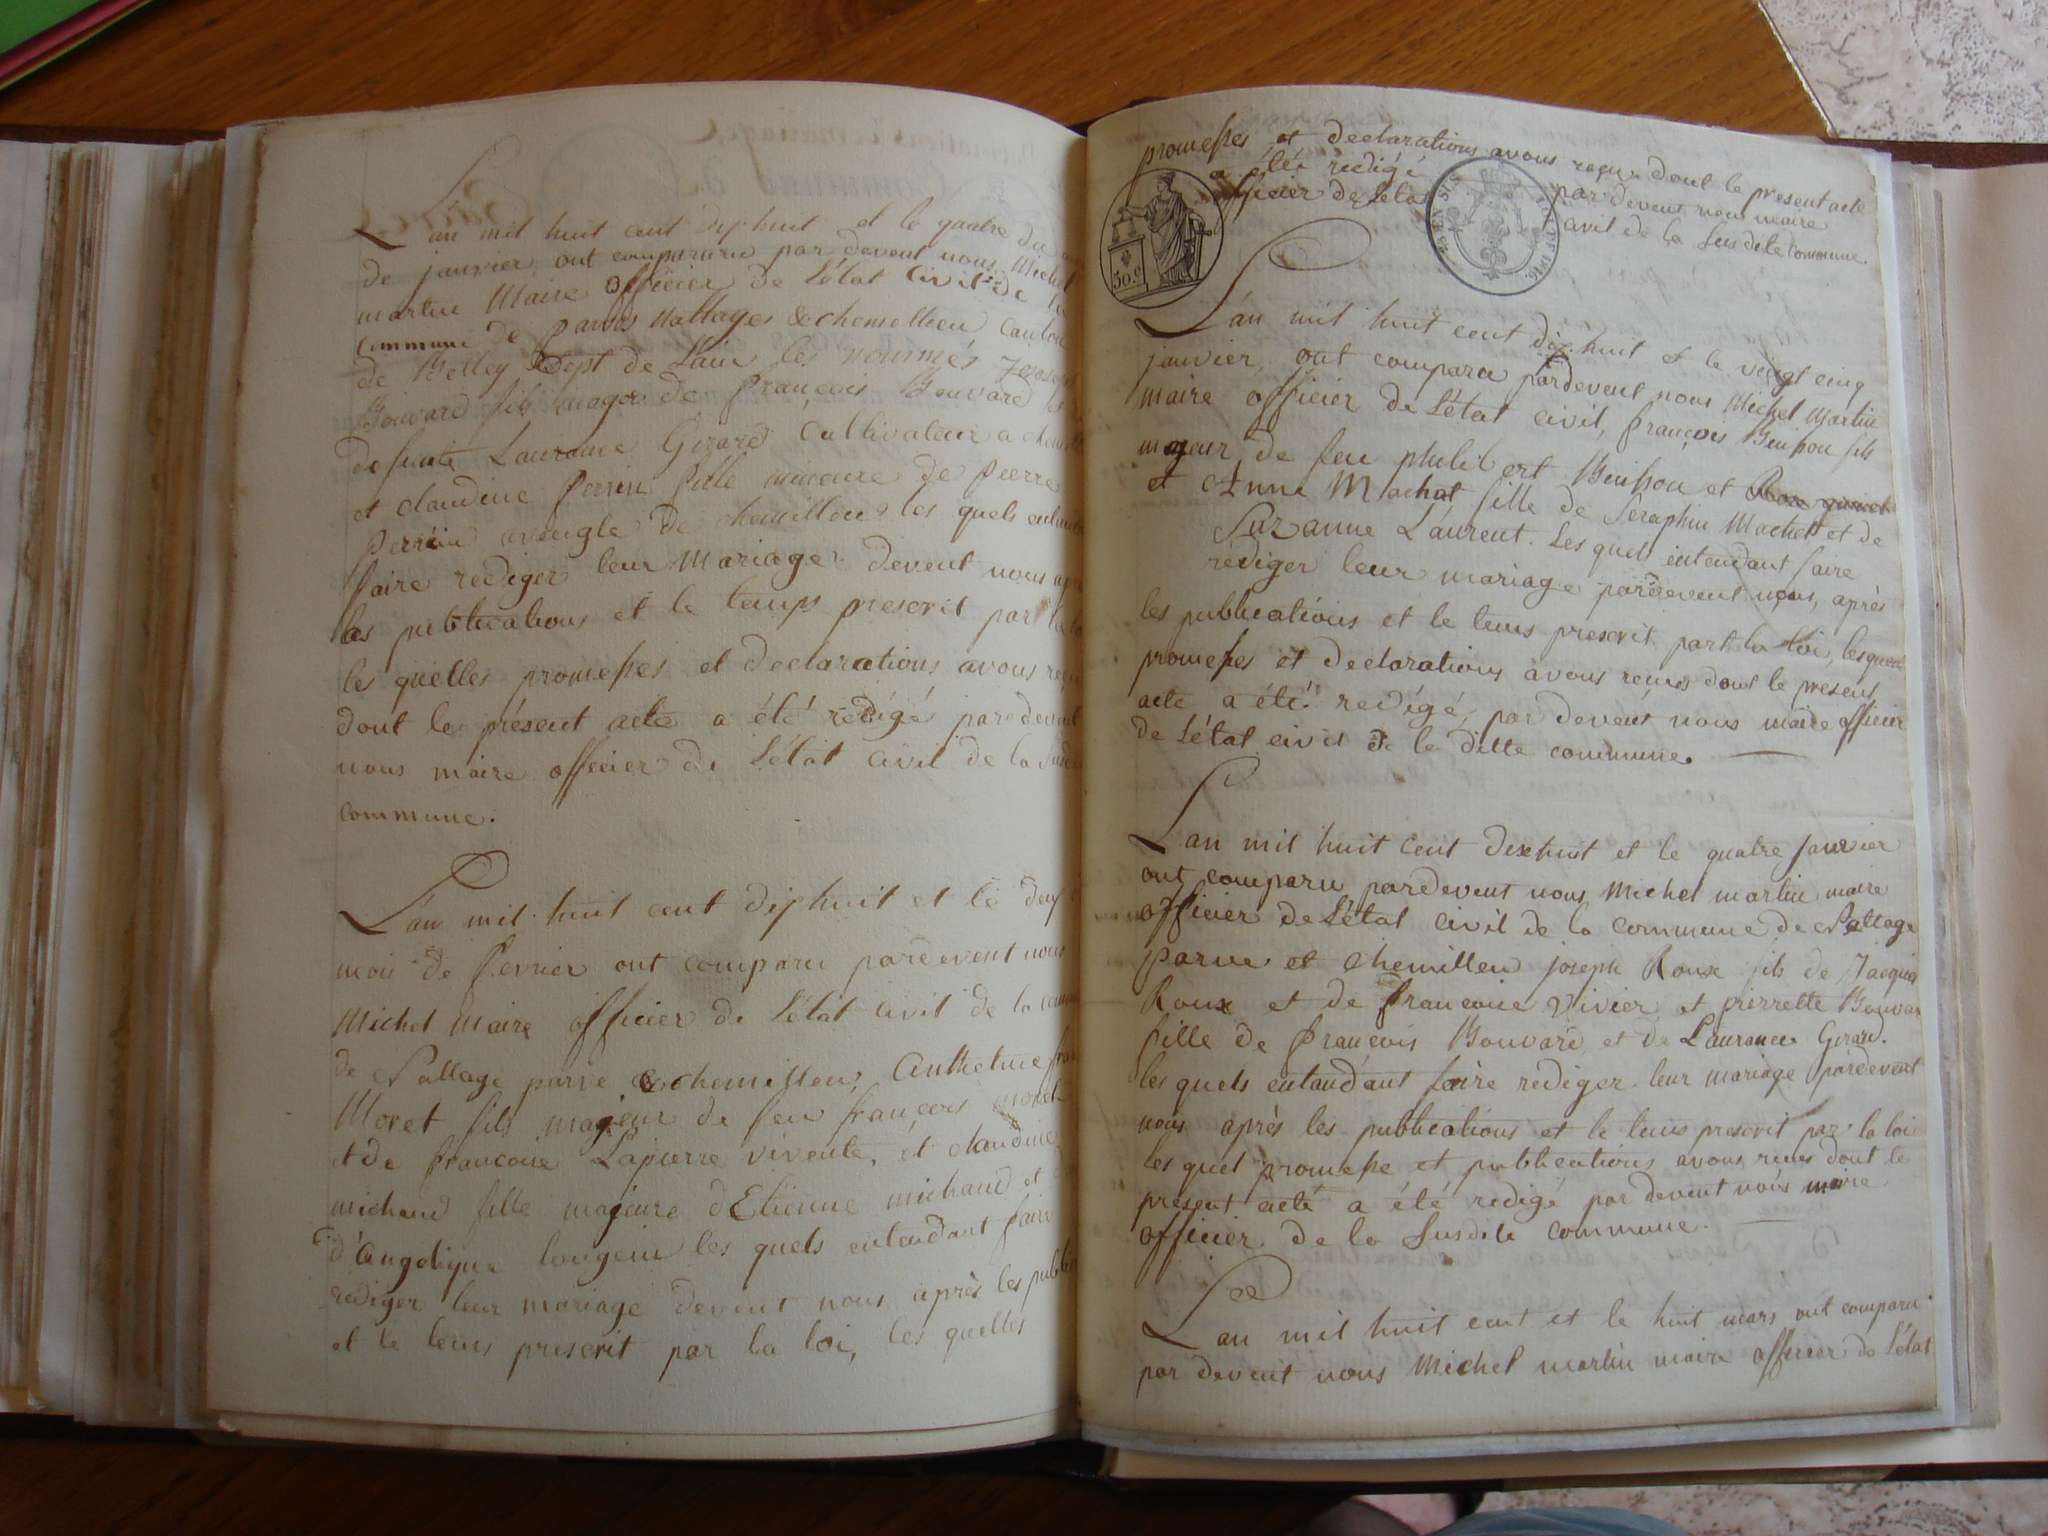 L'an mil huit cent dixhuit et le quatre du
de janvier, ont comparu par devent nous Michel
martin Maire officier de L'état Civil de la
commune de parves Nattages & chemillieu Canton
de Belley Dept de L'ain les nommés Joseph
Bouvard fils magor de françois Bouvard
defunte Laurance Girard Cultivateur a
et claudine perrin fille mineure de pierre
perrin aveugle de chemillieu les quels
faire rediger leur mariage devent nous
les publications et le temps prescrit part la
les quelles promesses et declarations avons
dont le présent acte a été redigé pardevent
nous maire officier de L'état civil de la
commune.
L'an mil huit cent dixhuit et le
mois de fevrier ont comparu pardevent nous
Michel maire officier de L'état civil de la
de Nattage parve & chemillieu, Anthelme
Moret fils majeur de feu françois moret
et de françoise Lapierre vivente, et claudine
michaud fille majeure d'Etienne michaud et
d'angelique longein les quels entendant faire
rediger leur mariage devent nous après les
et le tems prescrit par la loi, les quelles
promesses et declarations avons reçus dont le present acte
a été redigé par devent nous maire
officier de L'état civil de la susdite Commune.
50.c
L'an mil huit cent dix-huit et le vingt cinq
janvier, ont comparu pardevent nous Michel Martin
maire officier de L'état civil, françois Buisson fils
majeur de feu philibert Buisson et
et Anne Machet fille de Seraphin Machet et de
Suzanne Laurent. Les quels entendant faire
rediger leur mariage pardevent nous, après
les publications et le tems prescrit part la loi,
promesses et declarations avons reçus dont le present
acte a été redigé, par devent nous maire officier
de L'état civil de la ditte commune.
L'an mil huit cent dixhuit et le quatre janvier
ont comparu pardevent nous Michel martin maire
officier de L'état civil de la commune de Nattage
parve et chemillieu joseph Roux fils de Jacques
Roux et de françoise Vivier, et pierrette
fille de françois Bouvard et de Laurance Girard.
les quels entandant faire rediger leur mariage pardevent
nous après les publications et le tems prescrit par la loi
les quel promesse et publications avons reçus dont le
present acte a été redigé par devent nous maire
officier de la Susdite commune.
L'an mil huit cent et le huit mars ont comparu
par devent nous Michel martin maire officier de L'état